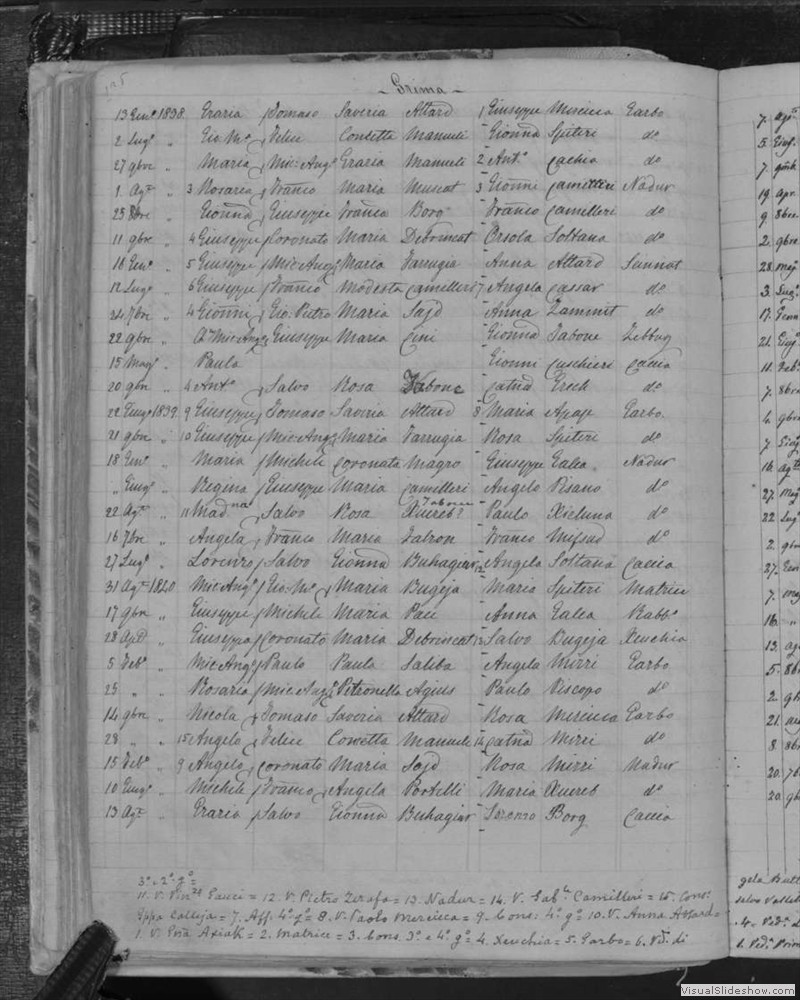 - Grima -
13 Genº 1838 Grazia Tomaso Saveria Attard 1 Giuseppe Mercieca Garbo
2 Lugº " Gio Mª Felice Concetta Manueli Gionna Spiteri dº
27 9bre " Maria Mic: Angº Grazia Manueli 2 Antº Cachia dº
1 Agº " 3 Rosaria Franco Maria Muscat 3 Gionni Camilleri Nadur
25 8bre " Gionna Giuseppe Franca Borg Franco Camilleri dº
11 9bre " 4 Giuseppe Coronato Maria Debrincat Orsola Soltana dº
16 Genº " 5 Giuseppe Mic Angº Maria Farrugia Anna Attard Sannat
12 Lugº " 6 Giuseppe Franco Modesta Camilleri 7 Angela Cassar dº
24 7bre " 4 Gionni Gio: Pietro Maria Sajd Anna Zammit dº
22 9bre " Mic Angº Giuseppe Maria Cini Gionna Tabone Zebbug
15 Magº " Paulo Gionni Cuschieri Caccia
20 9bre " 4 Antº Salvo Rosa Tabone Catna Grech dº
22 Giugº 1839 9 Giuseppe Tomaso Saveria Attard 8 Maria Apap Garbo
21 9bre " 10 Giuseppe Mic Angº Maria Farrugia Rosa Spiteri dº
18 Genº " Maria Michele Coronata Magro Giuseppe Galea Nadur
" Giugº " Regina Giuseppe Maria Camilleri Angelo Pisano dº
Tabone
22 Agº " 11 Madna Salvo Rosa Xuereb? Paulo Xicluna dº
16 7bre " Angela Franco Maria Falzon Franco Mifsud dº
27 Lugº " Lorenzo Salvo Gionna Buhagiar 12 Angela Soltana Caccia
31 Agº 1840 Mic Angº Gio: Mª Maria Bugeja Maria Spiteri Matrice
17 9bre " Giuseppe Michele Maria Pace Anna Galea Rabbº
28 " Giuseppa Coronato Maria Debrincat 13 Salvo Bugeja Xeuchia
5 Febº " Mic Angº Paulo Paula Saliba Angela Mizzi Garbo
25 " " Rosaria Mic Angº Petronella Agius Paulo Piscopo dº
14 9bre " Nicola Tomaso Saveria Attard Rosa Mercieca Garbo
28 " " 15 Angelo Felice Concetta Manueli 14 Catna Mizzi dº
15 Febº " 9 Angelo Coronato Maria Sajd Rosa Mizzi Nadur
10 Giugº " Michele Franco Angela Portelli Maria Xuereb dº
13 Agº " Grazia Salvo Gionna Buhagiar Lorenzo Borg Caccia
3º e 2º gº =
11. V. Vinzº Gauci = 12. V. Pietro Zerafa = 13. Nadur = 14. V. Camilleri = 15. Cons:
Gppa Calleja = 7. Aff: 4º gº = 8. V. Paolo Mercieca = 9. Cons: 4º gº = 10. V. Anna Attard =
1. V. Axiak = 2. Matrice = 3. Cons. 3º e 4º gº = 4. Xeuchia = 5. Garbo = 6. Vª di
VisualSlideshow.com